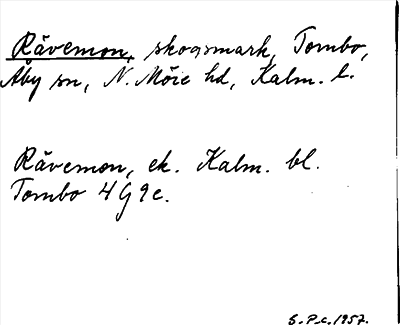 Rävemon, skogsmark, Tombo,
Åby sn, N. Möre hd, Kalm. l.
Rävemon, ek. Kalm. bl.
Tombo 4G9c.
S. P-c. 1957.